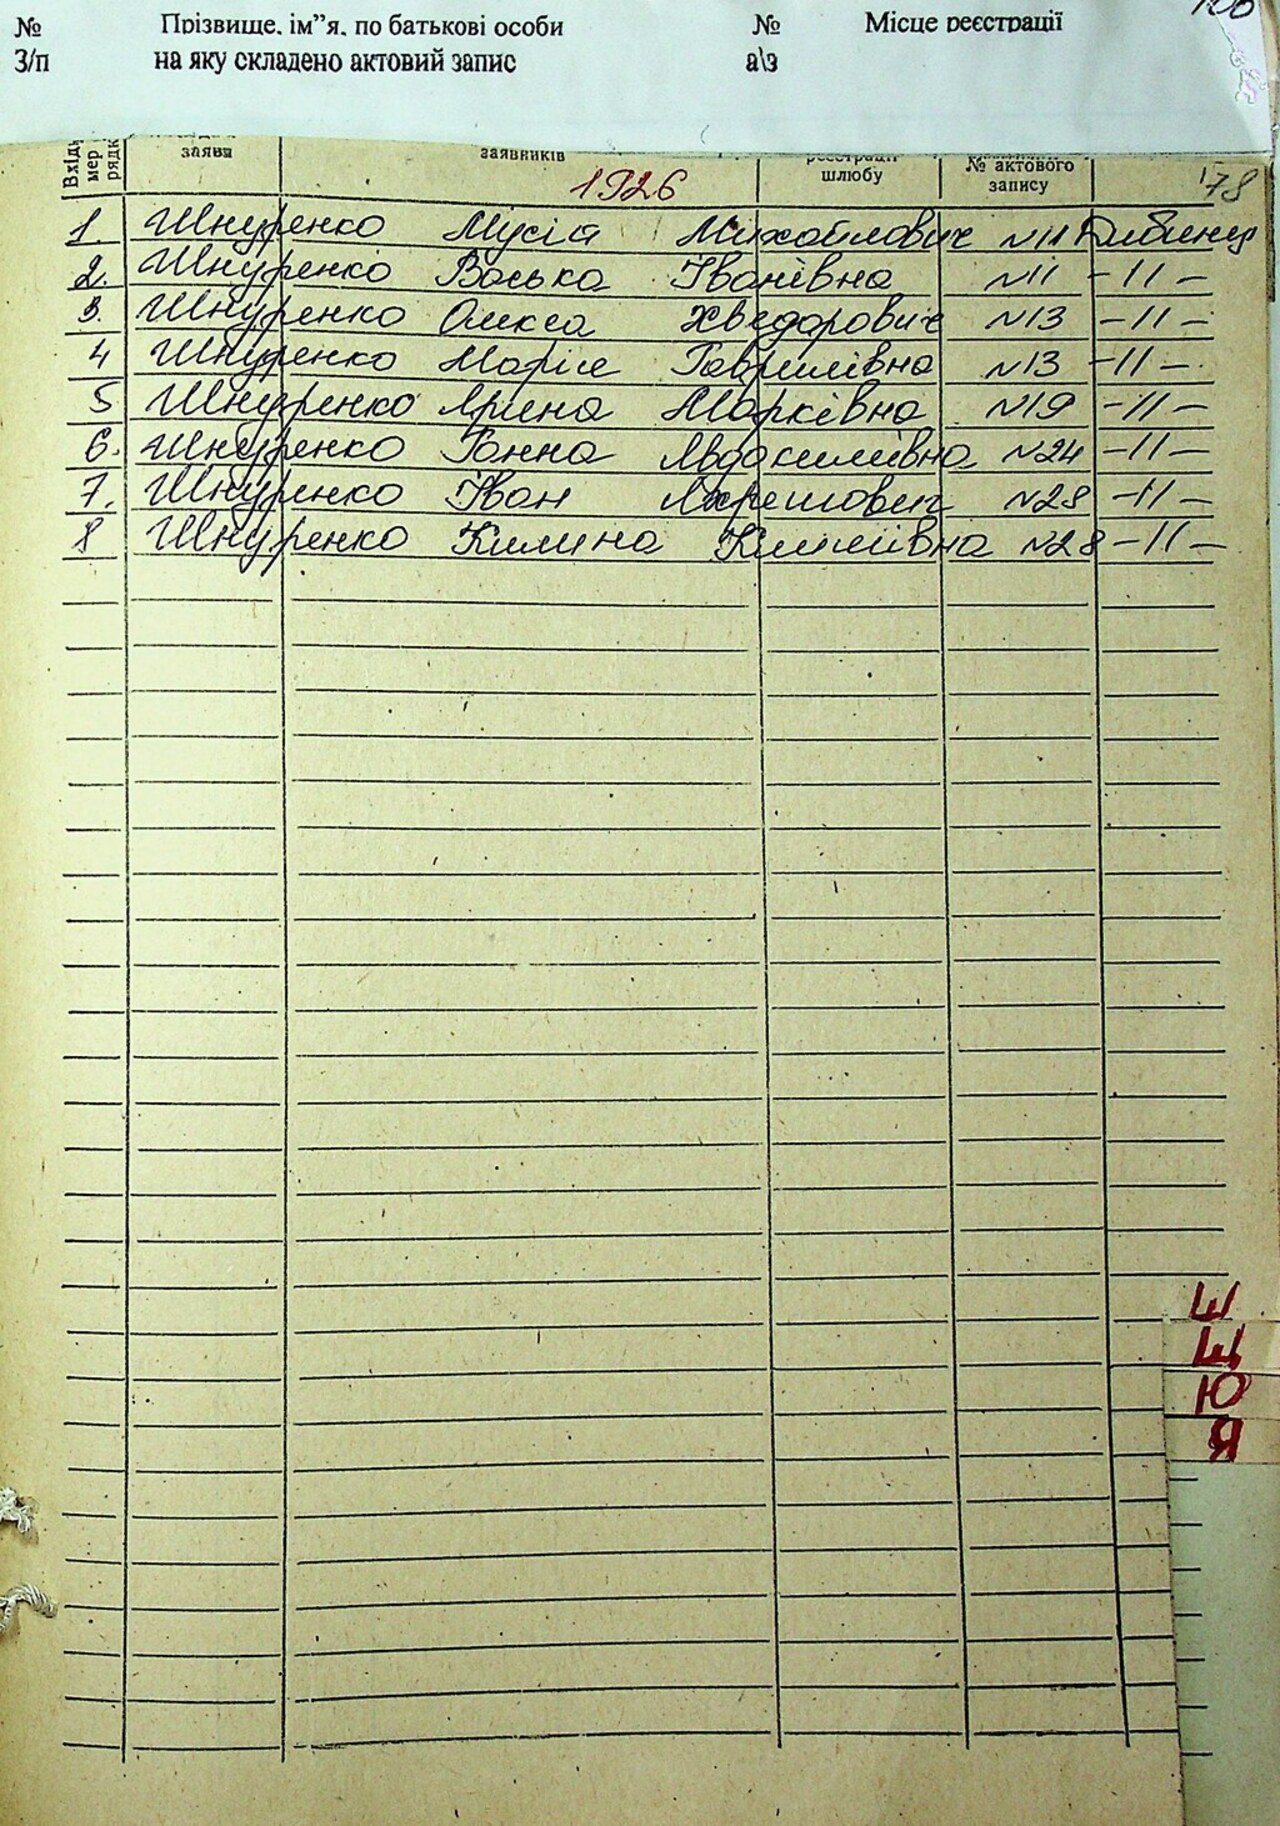 № Прізвище, ім”я, по батькові особи № Місце реєстрації
З/п на яку складено актовий запис а\з
мер рядк заяви заявників реєстрації шлюбу № актового запису
1926 178
1. Шнуренко Мусій Михайлович №11 Дибинці
2. Шнуренко Васька Іванівна №11 -11-
3. Шнуренко Олекса Хведорович №13 -11-
4 Шнуренко Марія Гаврилівна №13 -11-
5 Шнуренко Ярина Марківна №19 -11-
6. Шнуренко Ганна №24 -11-
7. Шнуренко Іван №28 -11-
8 Шнуренко Килина №28 -11-
Ш
Щ
Ю
Я